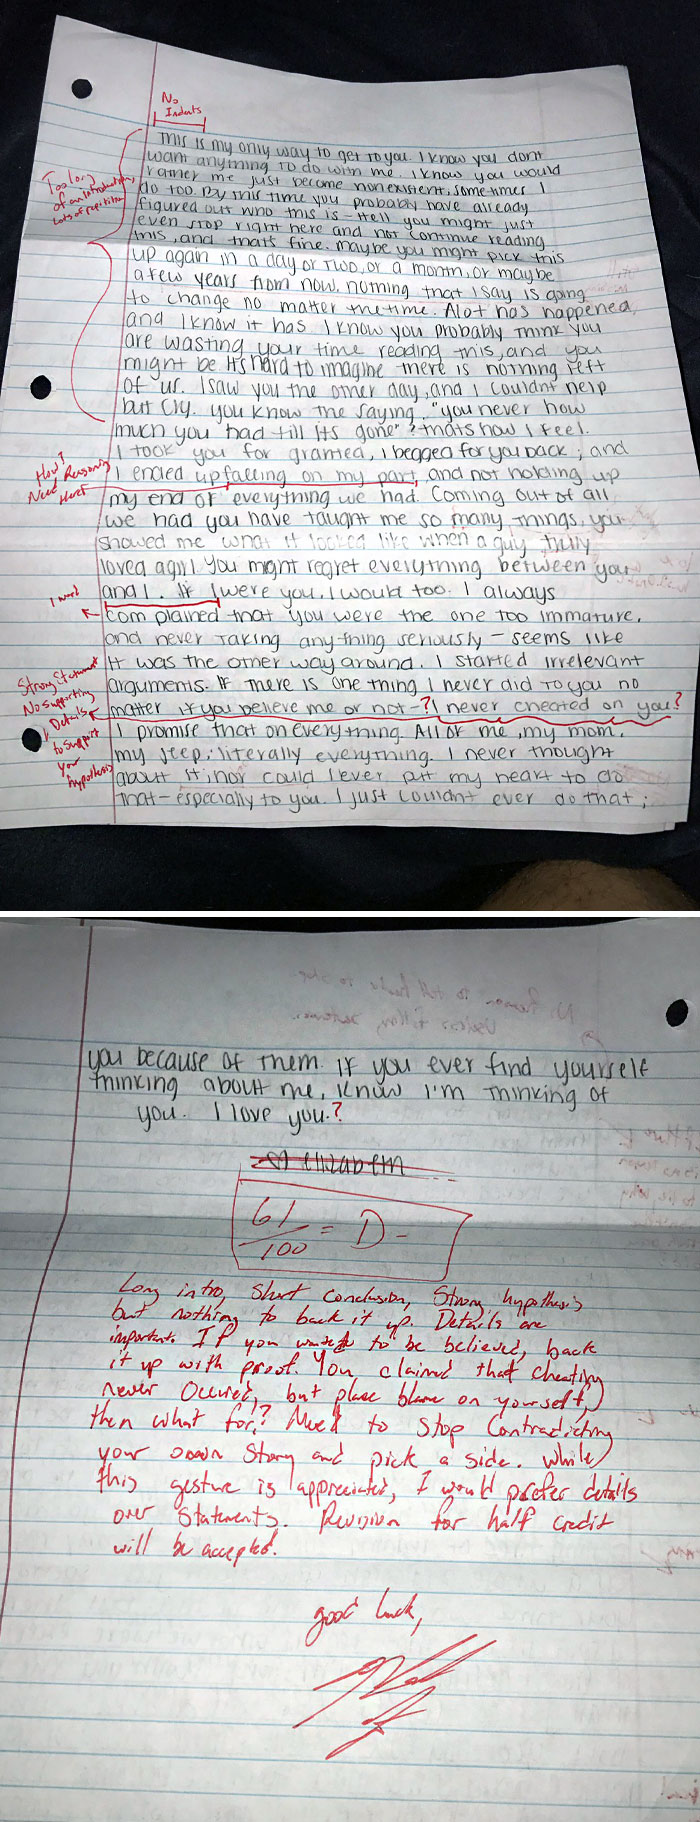 No
Indents
This is my only way to get to you. I know you dont
want anything to do with me. I know you would
rather me just become nonexistent, sometimes I
do too. By this time you probably have already
figured out who this is - Hell you might just
even stop right here and not continue reading
this, and thats fine. maybe you might pick this
up again in a day or two, or a month, or maybe
a few years from now, nothing that I say is going
to change no matter the time. Alot has happened,
and I know it has I know you probably think you
are wasting your time reading this, and you
might be its hard to imagine there is nothing left
of "us. I saw you the other day, and I couldnt help
but cry. you know the saying, "you never how
much you had till its gone"? thats how I feel.
I took you for granted, I begged for you back; and
I ended up falling on my part, and not holding up
my end of everything we had. Coming out of all
we had you have taught me so many things, you
showed me what it looked like when a guy truly
loved a girl. You might regret everything between you
and I. If I were you, I would too. I always
complained that you were the one too immature,
and never taking any-thing seriously - seems like
it was the other way around. I started irrelevant
arguments. If there is one thing I never did to you no
matter if you believe me or not - ? I never cheated on you?
I promise that on everything. All of me, my mom,
my jeep; literally everything. I never thought
about it; nor could I ever put my heart to do
that - especially to you. I just couldnt ever do that;
Too long
of an introduction,
Lots of repitition
How?
Need Reasoning
Here?
Strong Statement
No supporting
Details
to support
your
hypothesis
you because of them. If you ever find yourself
thinking about me, know I'm thinking of
you. I love you.?
elizabeth
61/100 = D-
Long intro, Short conclusion, Strong hypothesis
but nothing to back it up. Details are
important. If you want to be believed, back
it up with proof. You claimed that cheating
never occured, but place blame on yourself,
then what for? Need to stop contradicting
your own story and pick a side. While
this gesture is appreciated, I would prefer details
over statements. Revision for half credit
will be accepted.
good luck,